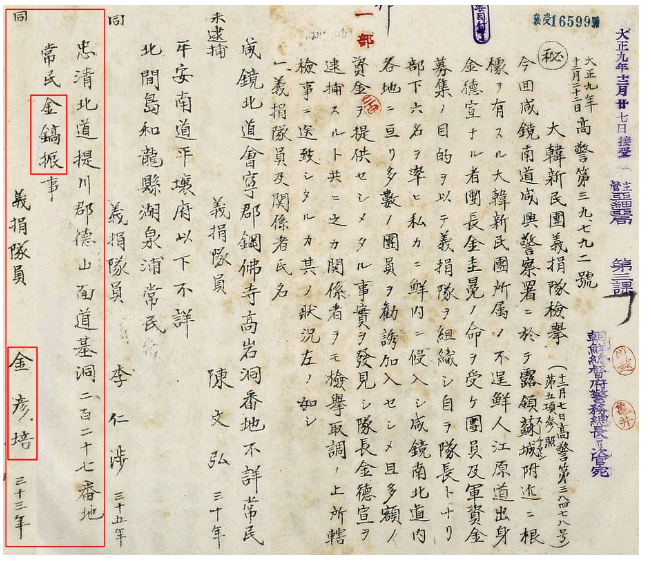 大正九年十二月廿七日接受
主管
第三課
朝鮮總督府警務總長ヨリ次官宛
發受16599號
一部
秘
大正九年
十二月二十二日
高警第三九七九二號
大韓新民團義捐隊檢擧
(十二月七日高警第三八四七八號)
第五項參照
今回咸鏡南道咸興警察署ニ於テ露領蘇城附近ニ根
據ヲ有スル大韓新民團所屬ノ不逞鮮人江原道出身
金德宣ナル者團長金圭晃ノ命ヲ受ケ團員及軍資金
募集ノ目的ヲ以テ義捐隊ヲ組織シ自ラ隊長トナリ
部下六名ヲ率ヒ私カニ鮮內ニ侵入シ咸鏡南北道內
各地ニ亘リ多數ノ團員ヲ勸誘加入セシメ且多額ノ
資金ヲ提供セシメタル事實ヲ發見シ隊長金德宣ヲ
逮捕スルト共ニ之カ關係者ヲモ檢擧取調ノ上所轄
檢事ニ送致シタルカ其ノ狀況左ノ如シ
一、義捐隊員及關係者氏名
咸鏡北道會寧郡鋼佛寺高岩洞番地不詳常民
未逮捕 義捐隊員 陳文弘 三十年
平安南道平壤府以下不詳
北間島和龍縣湖泉浦常民
同 義捐隊員 李仁涉 三十五年
忠淸北道提川郡德山面道基洞二百二十七番地
常民金鎬振事
同 義捐隊員 金彥培 三十三年